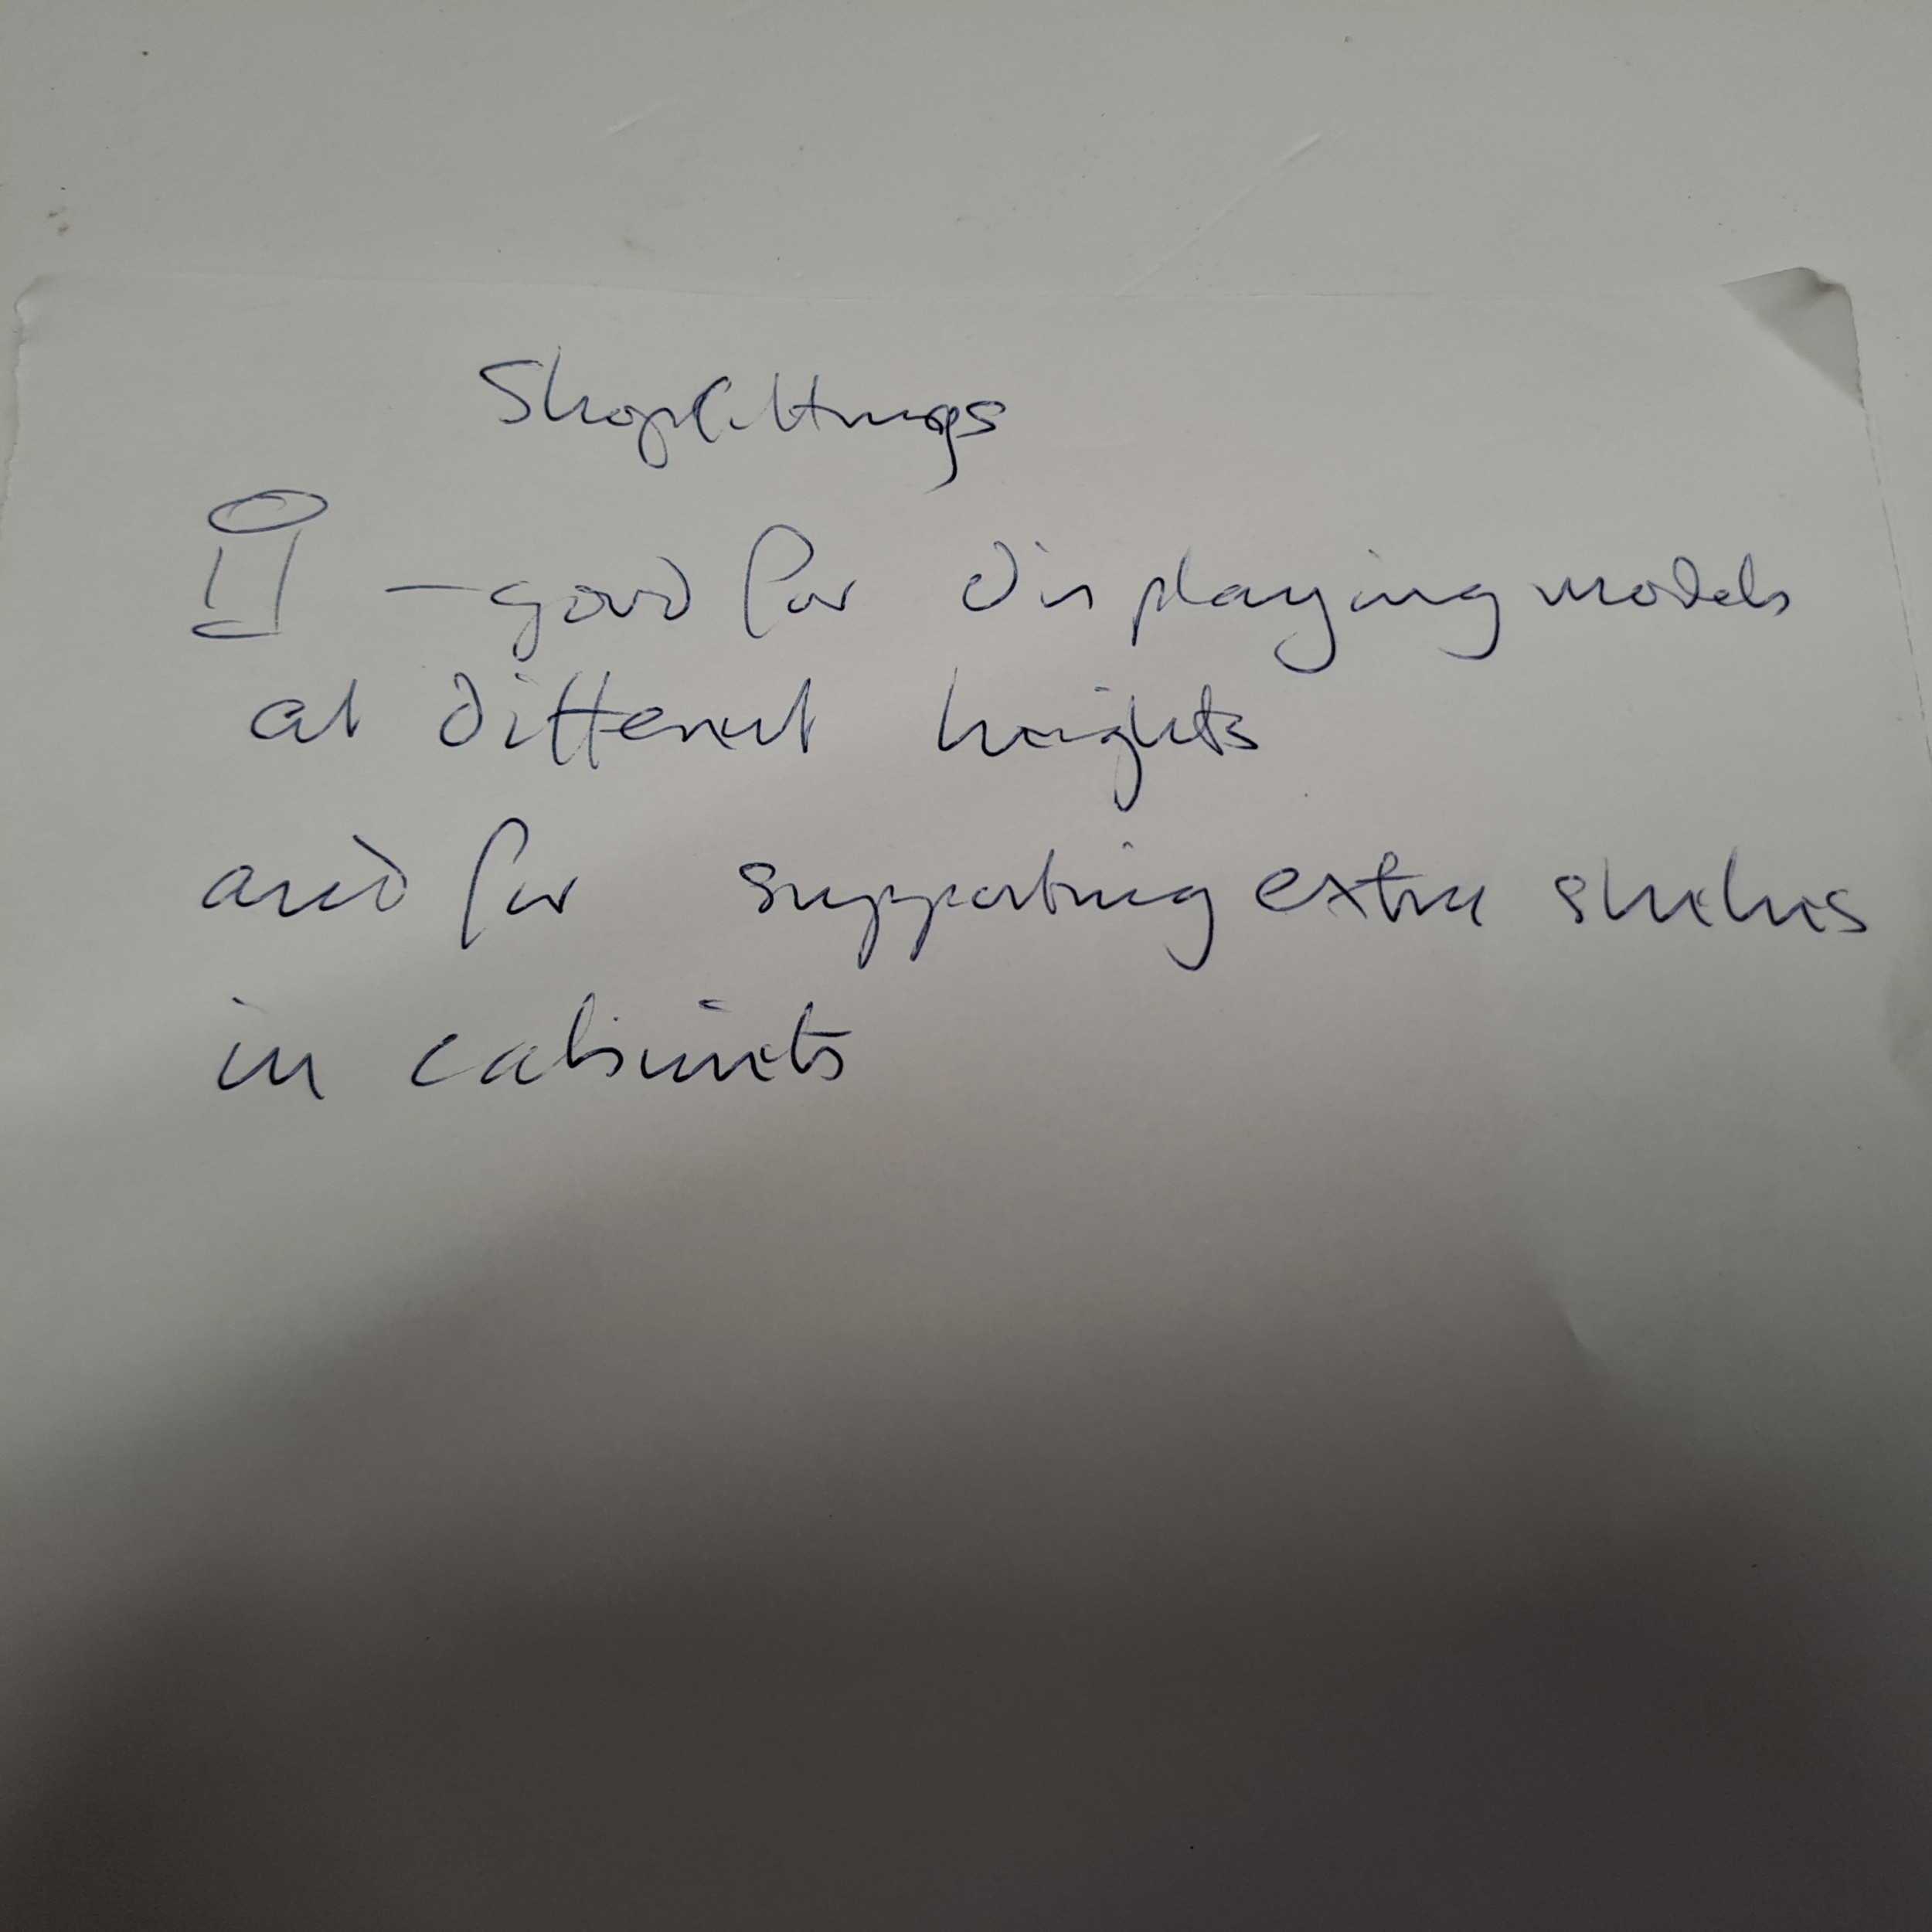 Shopfittings
— good for displaying models
at different heights
and for supporting extra shelves
in cabinets